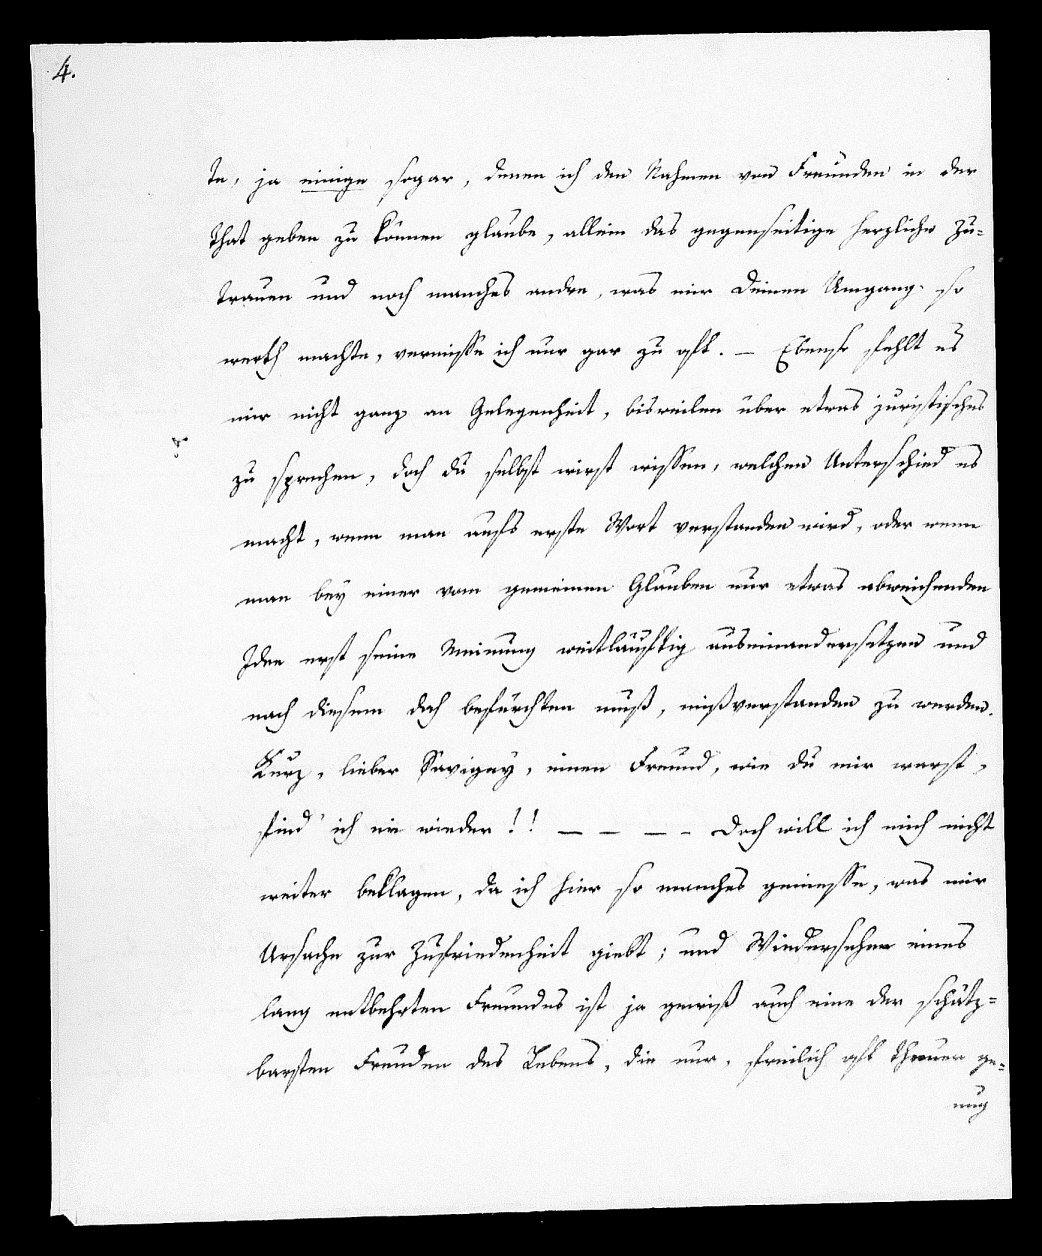 4.
te, ja einige sogar, denen ich den Nahmen von Freunden in der
That geben zu können glaube, allein das gegenseitige herzliche Zu-
trauen und noch manches andre, was mir Deinen Umgang so
werth machte, vermisse ich nur gar zu oft. — Ebenso fehlt es
mir nicht ganz an Gelegenheit, bisweilen über etwas juristisches
zu sprechen, doch du selbst wirst wissen, welchen Unterschied es
macht, wenn man aufs erste Wort verstanden wird, oder wenn
man bey einer vom gemeinen Glauben nur etwas abweichenden
Idee erst seine Meinung weitläuftig auseinandersetzen und
nach diesem doch befürchten muß, mißverstanden zu werden.
Kurz, lieber Savigny, einen Freund, wie du mir warst,
find' ich nie wieder!! — — — – Doch will ich mich nicht
weiter beklagen, da ich hier so manches geniesse, was mir
Ursache zur Zufriedenheit giebt; und Wiedersehen eines
lang entbehrten Freundes ist ja gewiß auch eine der schätz-
barsten Freuden des Lebens, die nur, freilich oft theuer ge-
nug